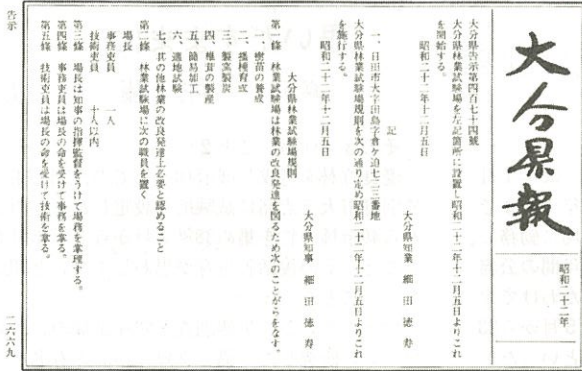 大分県報
昭和二十二年
大分県告示第四百七十四號
大分県林業試験場を左記箇所に設置し昭和二十二年十二月五日よりこれ
を開始する。
昭和二十二年十二月五日
大分県知事 細田徳寿
記
一、日田市大字田島字倉ケ迫七三三番地
大分県林業試験場規則を次の通り定め昭和二十二年十二月五日よりこれ
を施行する。
昭和二十二年十二月五日
大分県知事 細田徳寿
大分県林業試験場規則
第一條 林業試験場は林業の改良発達を図るため次のことがらをなす。
一、樹苗の養成
二、播種育成
三、製炭製炭
四、椎茸の製産
五、簡易加工
六、適地試験
七、其の他林業の改良発達上必要と認めること
第二條 林業試験場に次の職員を置く
場長
事務吏員 一人
技術吏員 十人以内
第三條 場長は知事の指揮監督をうけて場務を掌理する。
第四條 事務吏員は場長の命を受けて事務を掌る。
第五條 技術吏員は場長の命を受けて技術を掌る。
告示
二六六九